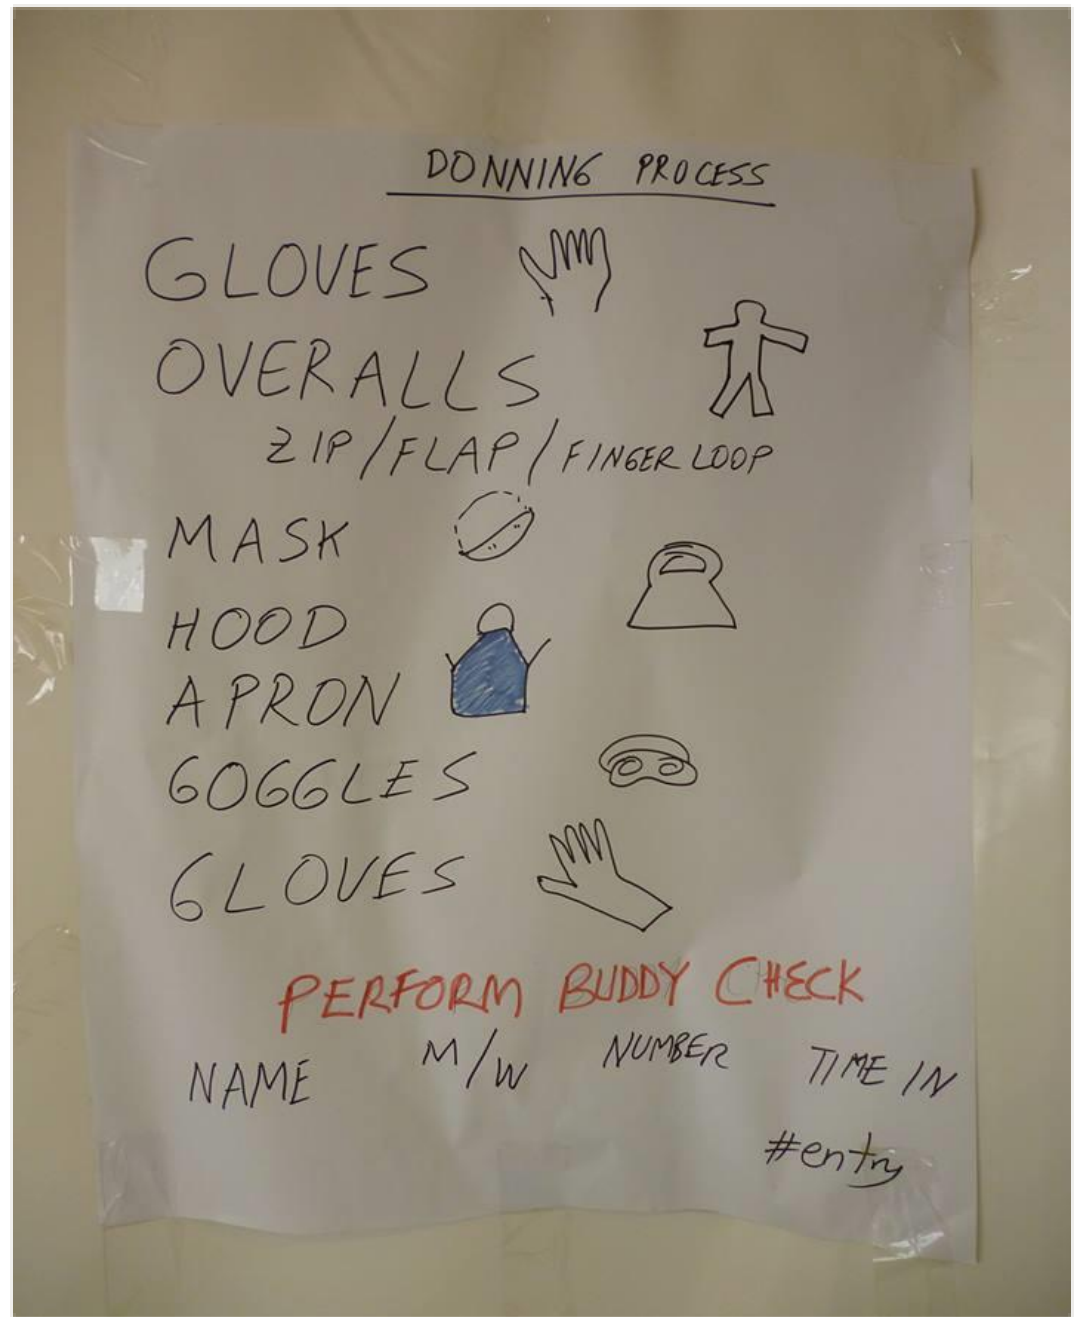 DONNING PROCESS
GLOVES
OVERALLS
ZIP/FLAP/FINGER LOOP
MASK
HOOD
APRON
GOGGLES
GLOVES
PERFORM BUDDY CHECK
NAME M/W NUMBER TIME IN
#entry